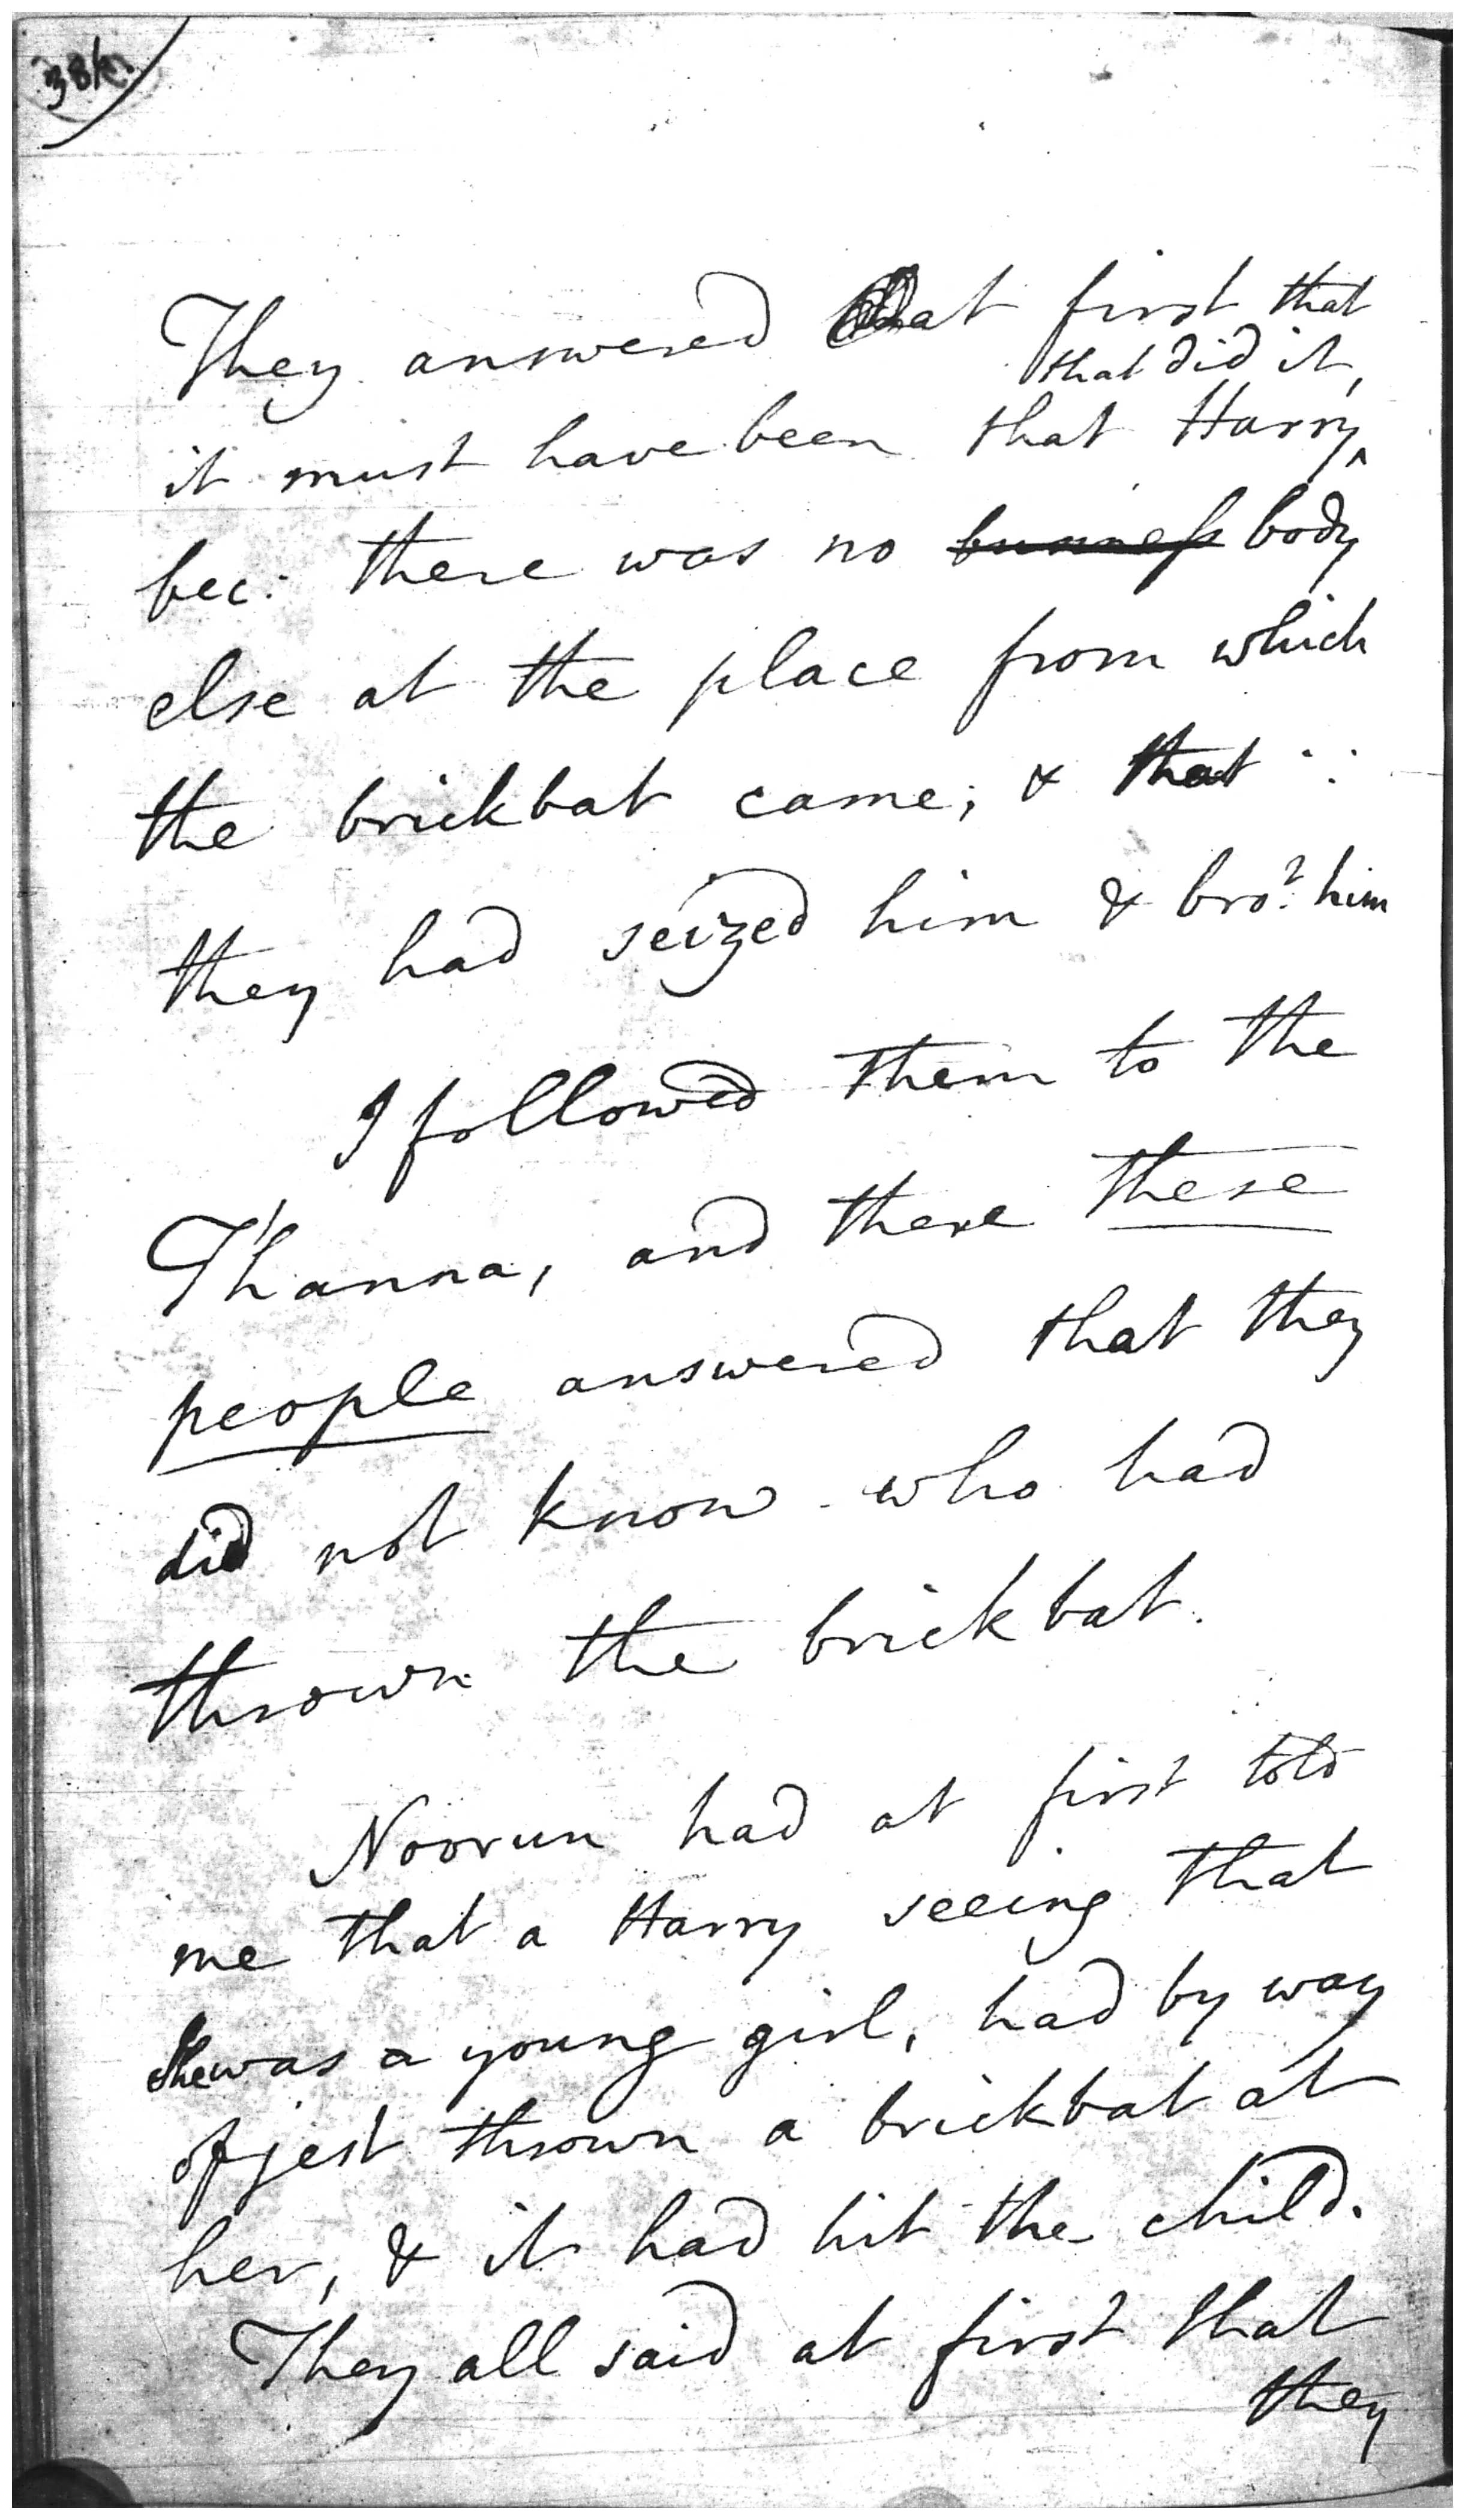 They answered at first that
that did it,
it must have been that Harry
bec: there was no business body
else at the place from which
the brickbat came, & that
they had seized him & bro.t him
I followed them to the
Thanna, and there these
people answered that they
did not know who had
thrown the brickbat.
Noorun had at first told
me that a Harry seeing that
she was a young girl, had by way
of jest thrown a brickbat at
her, & it had hit the child.
They all said at first that
they